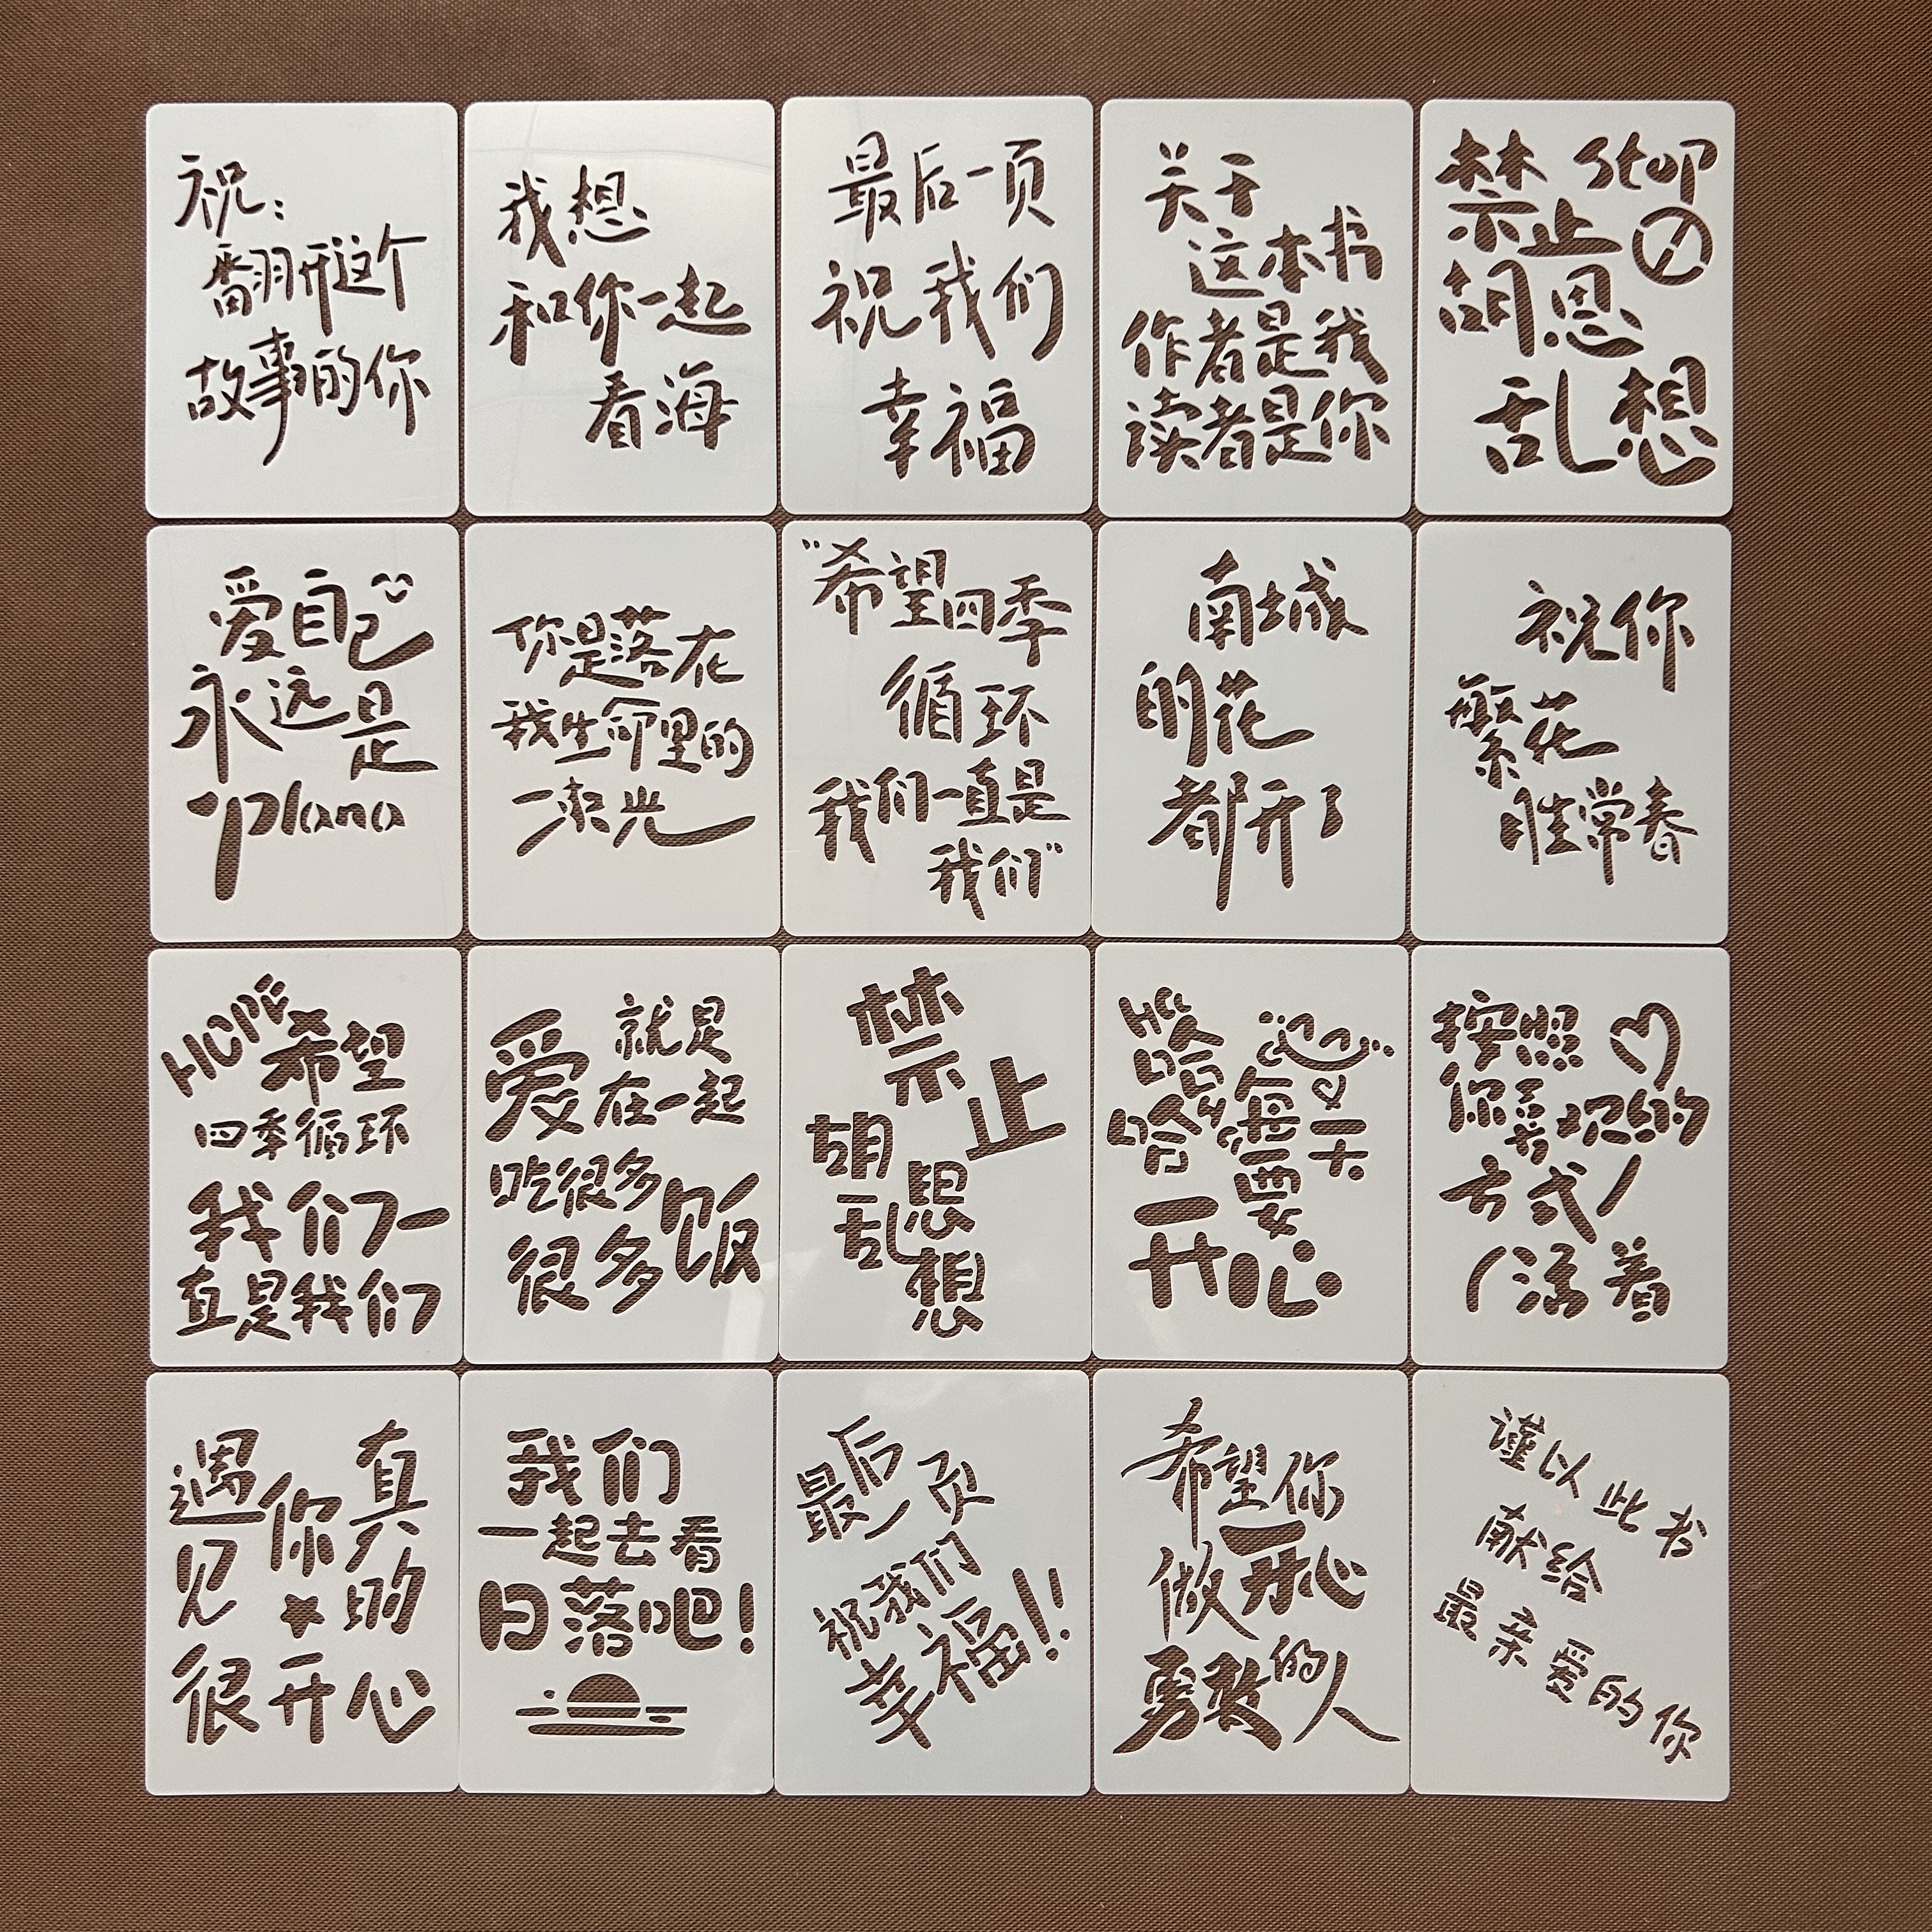 祝：
翻开这个
故事的你
我想
和你一起
看海
最后一页
祝我们
幸福
关于
这本书
作者是我
读者是你
禁止 stop
胡思
乱想
爱自己
永远是
plana
你是落在
我生命里的
一束光
“希望四季
循环
我们一直是
我们”
南城
的花
都开了
祝你
繁花
胜常春
HOPE
希望
四季循环
我们一
直是我们
爱 就是
在一起
吃很多
很多饭
禁止
胡思
乱想
Ha
哈哈
每天
要
开心
按照
你喜欢的
方式
活着
遇见你真的
很开心
我们
一起去看
日落吧！
最后
一页
祝我们
幸福!!
希望你
做开心
勇敢的人
谨以此书
献给
最亲爱的你